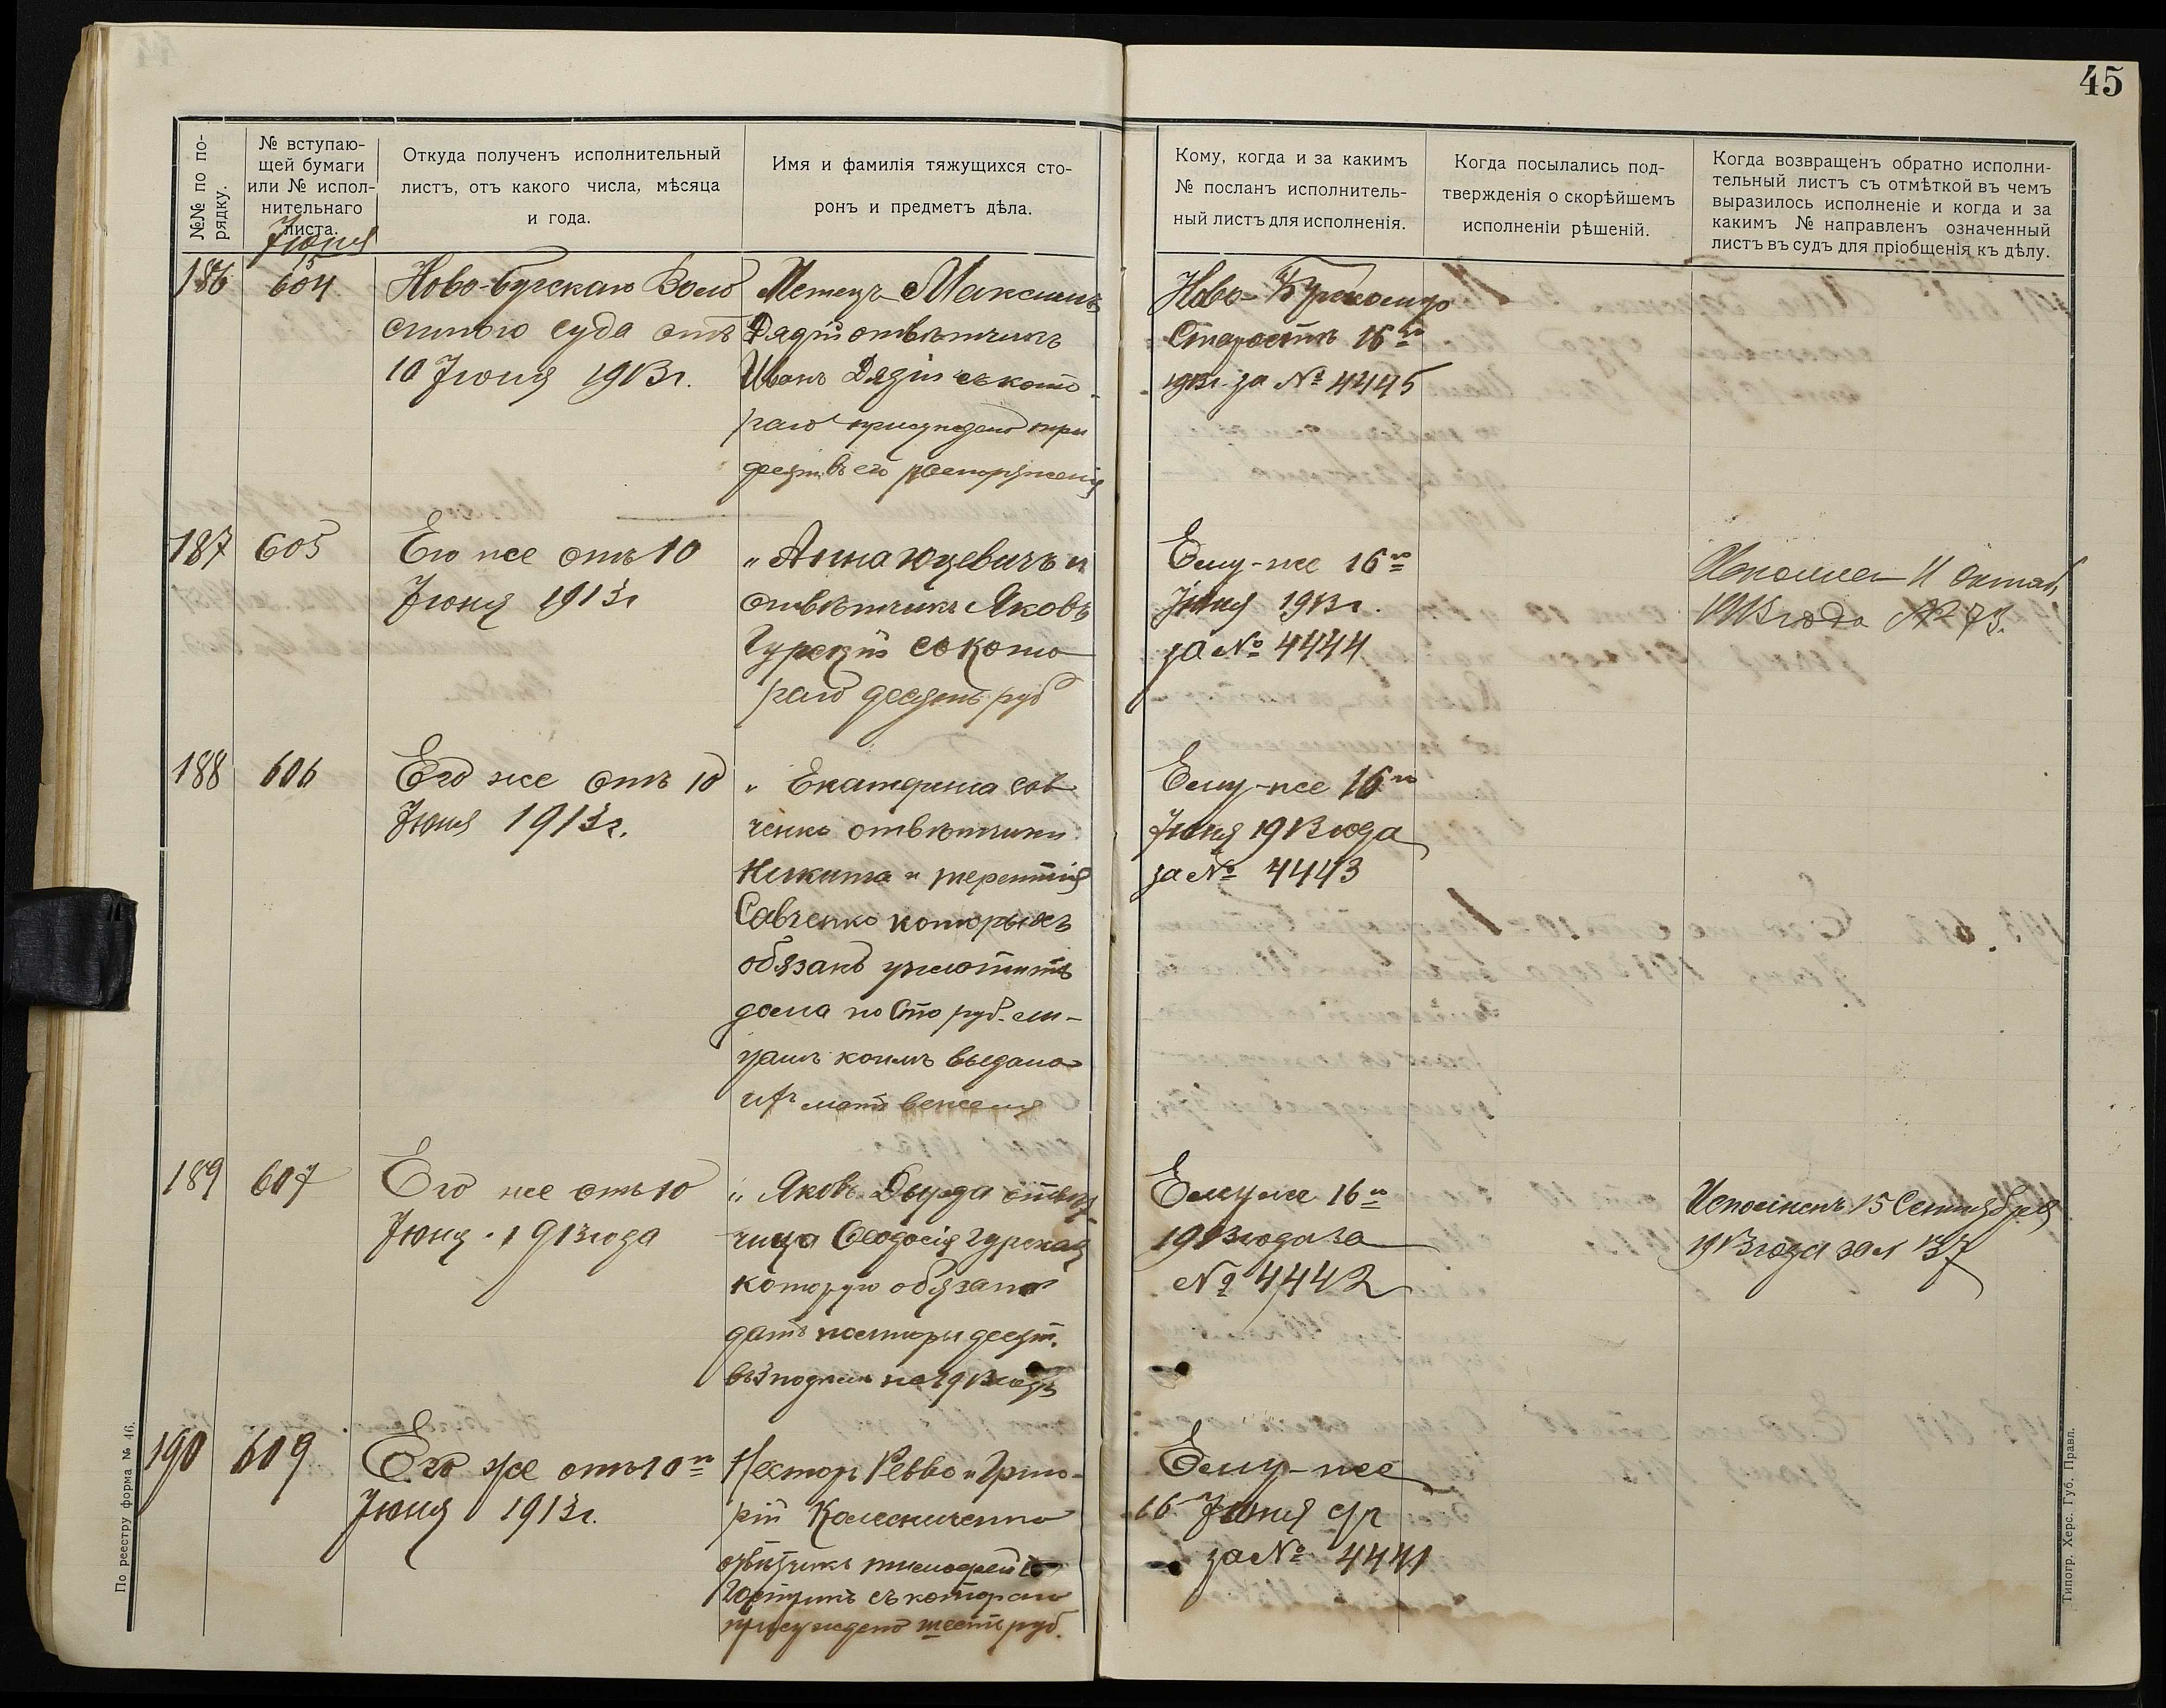 45
№№ по по-
рядку.
№ вступаю-
щей бумаги
или № испол-
нительнаго
листа.
Откуда полученъ исполнительный
листъ, отъ какого числа, мѣсяца
и года.
Имя и фамилія тяжущихся сто-
ронъ и предметъ дѣла.
Кому, когда и за какимъ
№ посланъ исполнитель-
ный листъ для исполненія.
Когда посылались под-
твержденія о скорѣйшемъ
исполненіи рѣшеній.
Когда возвращенъ обратно исполни-
тельный листъ съ отмѣткой въ чемъ
выразилось исполненіе и когда и за
какимъ № направленъ означенный
листъ въ судъ для пріобщенія къ дѣлу.
Іюня
15
186
604
Ново-Бугскаго Воло
стного суда отъ
10 Іюня 1913 г.
Истецъ Максимъ
отвѣтчикъ
Иванъ съ кото
раго присуждено три
десят. въ его распоряженія
Ново-Бугскому
Старостѣ 16го
1913 г. за № 4445
187
605
Его же отъ 10
Іюня 1913 г
" Анна Юзевичъ и
отвѣтчикъ Яковъ
Гурскій съ кото
раго десять руб
Ему-же 16го
Іюня 1913 г.
за № 4444
11 Октяб,
1913 года № 73.
188
606
Его же отъ 10
Іюня 1913 г.
" Екатерина Сав
ченко отвѣтчики
Никита и Терентій
Савченко которыхъ
обязанъ уплотить
дома по Сто руб.
коимъ выдано
Ему-же 16го
Іюня 1913 года
за № 4443
189
607
Его же отъ 10
Іюня 1913 года
" Яковъ отвѣт
чица Ѳеодосія Гурская
которую обязано
дать десят.
на 1913 годъ
Ему же 16го
1913 года за
№ 4442
Исполненъ 15 Сентября
1913 года за № 137
190
609
Его же отъ 10го
Іюня 1913 г.
Несторъ Ревво и Григо-
рій Колесниченко
отвѣтчикъ Тимофей
съ котораго
присуждено шесть руб.
Ему-же
16 Іюня с/г
за № 4441
По реестру форма № 46.
Типогр. Херс. Губ. Правл.